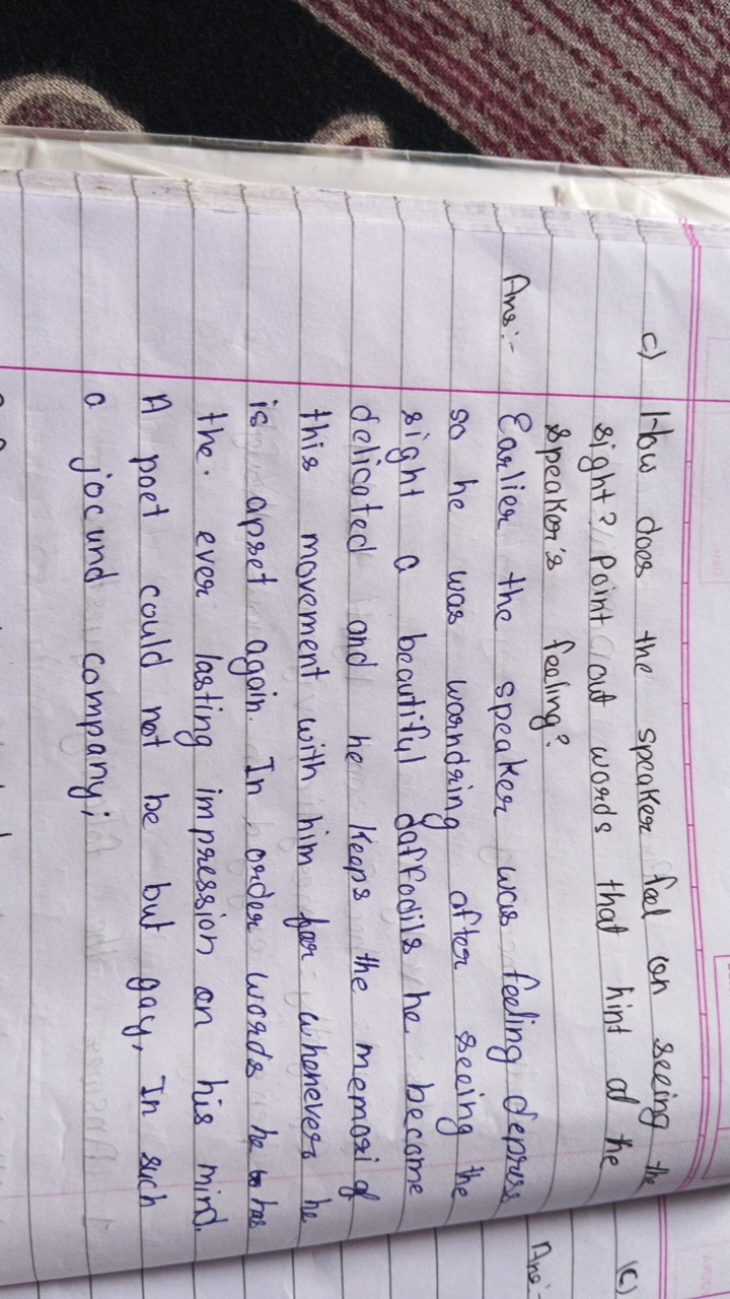 c) How does the speaker feel on seeing the
sight? Point out words that hint at the
speaker's feeling?
Ans:- Earlier the speaker was feeling depress
so he was wondring after seeing the
sight a beautiful daffodils he become
delicated and he keeps the memori of
this movement with him for whenever he
is apset again. In order words he has
the ever lasting impression on his mind.
A poet could not be but gay, In such
a jocund company;
(c)
Ans:-